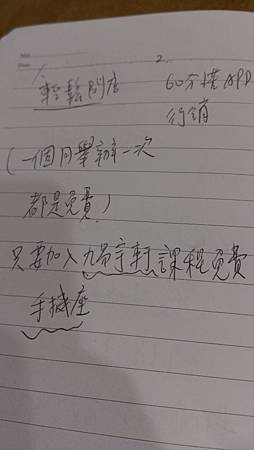 1.
輕鬆開店
2.
60分搞APP
行銷
(一個月舉辦一次
都是免費)
只要加入九易宇軒課程免費
手機座